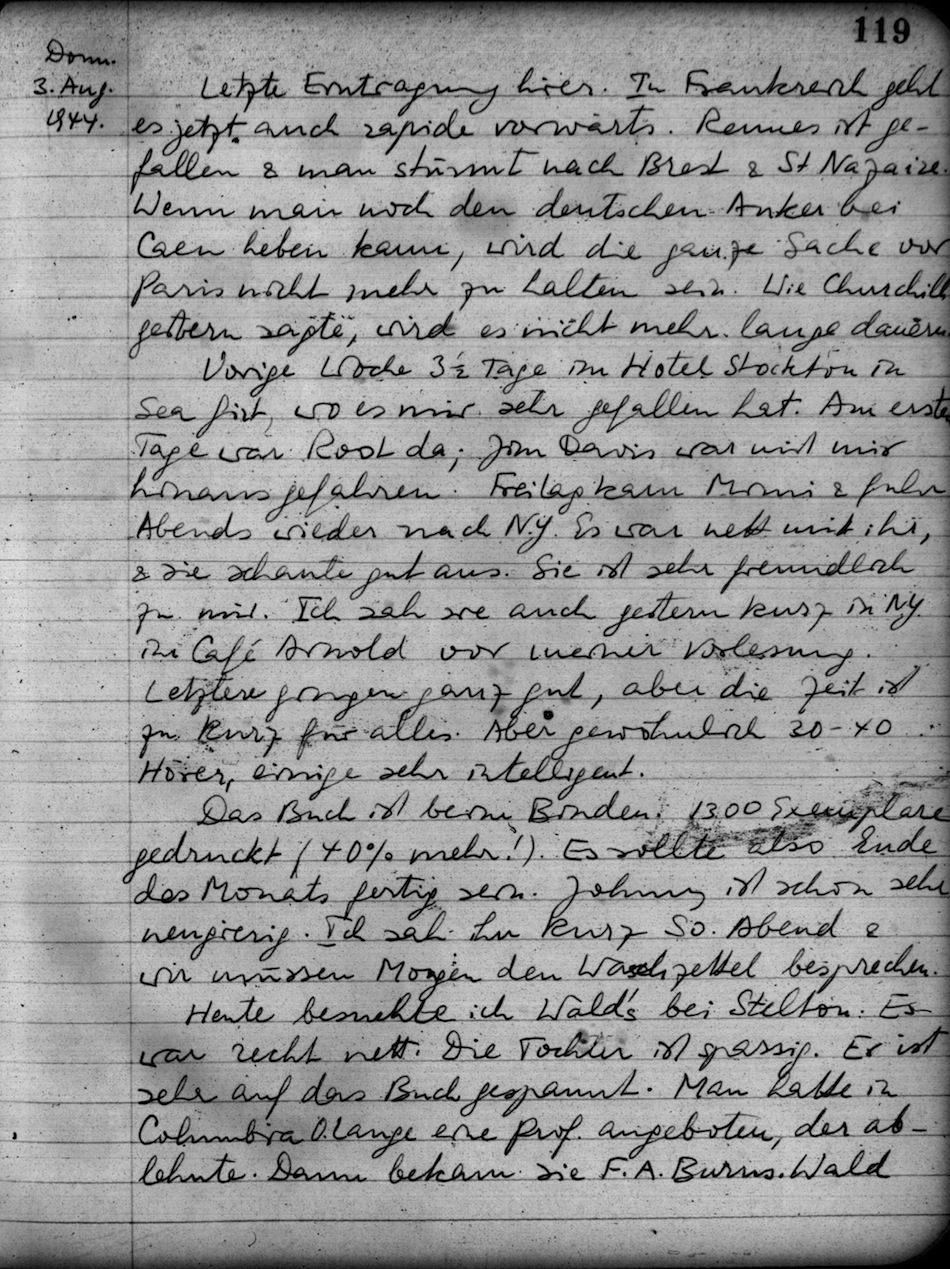 119
Donn.
3. Aug.
1944.
Letzte Eintragung hier. In Frankreich geht
es jetzt auch rapide vorwärts. Rennes ist ge-
fallen & man stürmt nach Brest & St Nazaire.
Wenn man noch den deutschen Anker bei
Caen heben kann, wird die ganze Sache vor
Paris nicht mehr zu halten sein. Wie Churchill
gestern sagte, wird es nicht mehr lange dauern.
Vorige Woche 3½ Tage im Hotel Stockton in
Sea Girt, wo es mir sehr gefallen hat. Am ersten
Tage war Roost da; Jim Davis war mit mir
hinausgefahren. Freitag kam Mimi & fuhr
Abends wieder nach N.Y. Es war nett mit ihr,
& sie schaute gut aus. Sie ist sehr freundlich
zu mir. Ich sah sie auch gestern kurz in NY.
im Café Arnold vor meiner Vorlesung.
Letztere gingen ganz gut, aber die Zeit ist
zu kurz für alles. Aber gewöhnlich 30-40
Hörer, einige sehr intelligent.
Das Buch ist beim Binden. 1300 Exemplare
gedruckt (40% mehr!). Es sollte also Ende
des Monats fertig sein. Johnny ist schon sehr
neugierig. Ich sah ihn kurz So. Abend &
wir müssen Morgen den Waschzettel besprechen.
Heute besuchte ich Wald's bei Stelton. Es
war recht nett. Die Tochter ist spassig. Er ist
sehr auf das Buch gespannt. Man hatte in
Columbia O. Lange eine Prof. angeboten, der ab-
lehnte. Dann bekam sie F.A. Burns. Wald